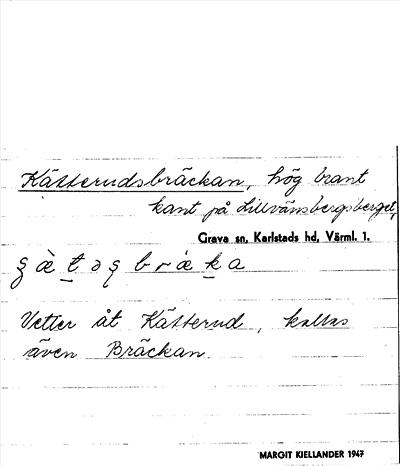 Kätterudsbräckan, hög brant
kant på Lillvänsbergsberget,
Grava sn, Karlstads hd, Värml. 1.
Vetter åt Kätterud, kallas
även Bräckan.
MARGIT KIELLANDER 1947